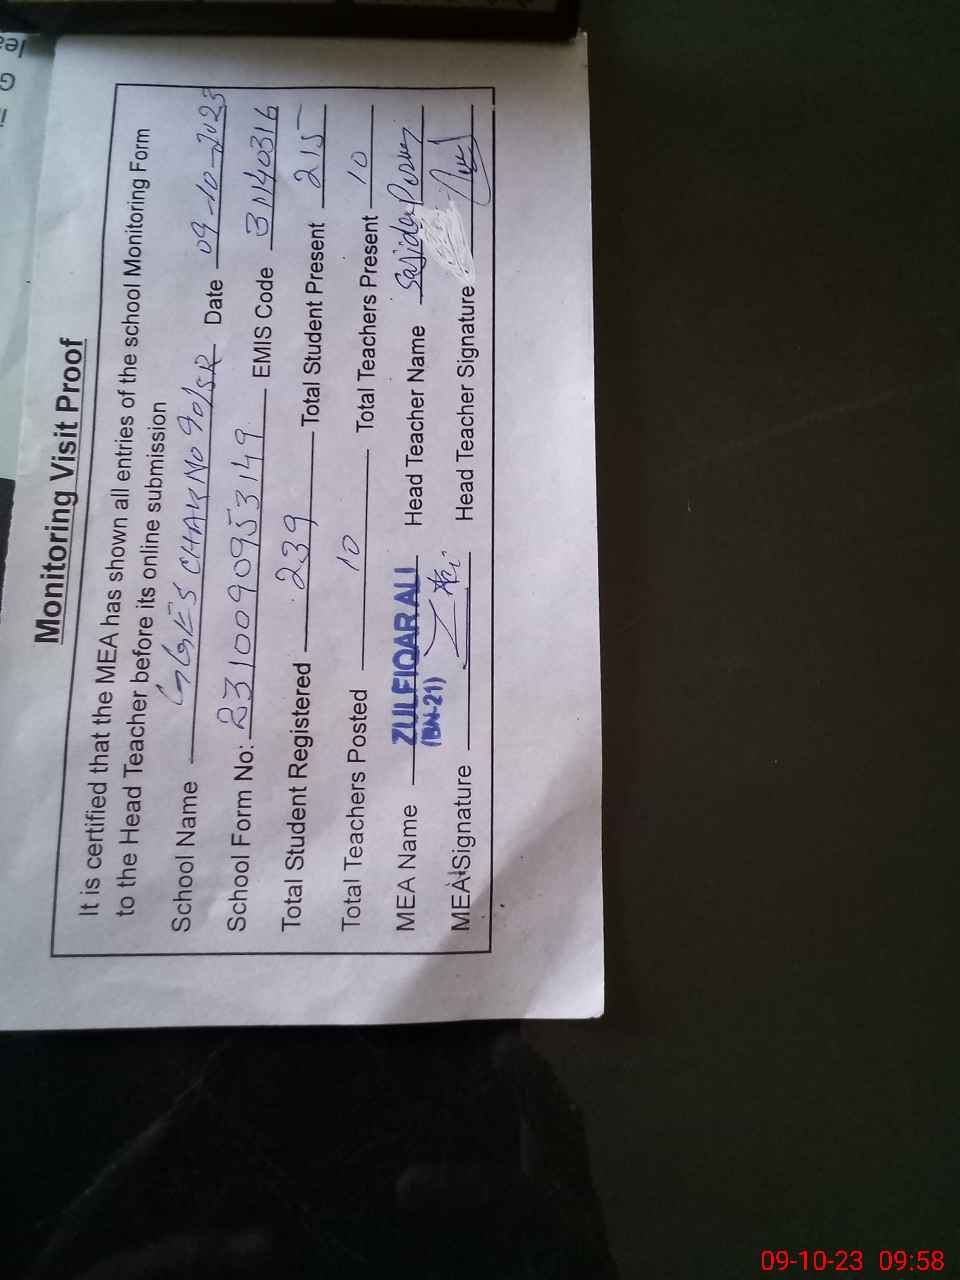 Monitoring Visit Proof
It is certified that the MEA has shown all entries of the school Monitoring Form
to the Head Teacher before its online submission
School Name GGES CHAK NO 90/5R Date 09-10-2023
School Form No: 231009095 3149 EMIS Code 31140316
Total Student Registered 239 Total Student Present 215
Total Teachers Posted 10 Total Teachers Present 10
MEA Name ZULFIQAR ALI Head Teacher Name Sajida
(BN-21)
MEA Signature Head Teacher Signature
09-10-23 09:58